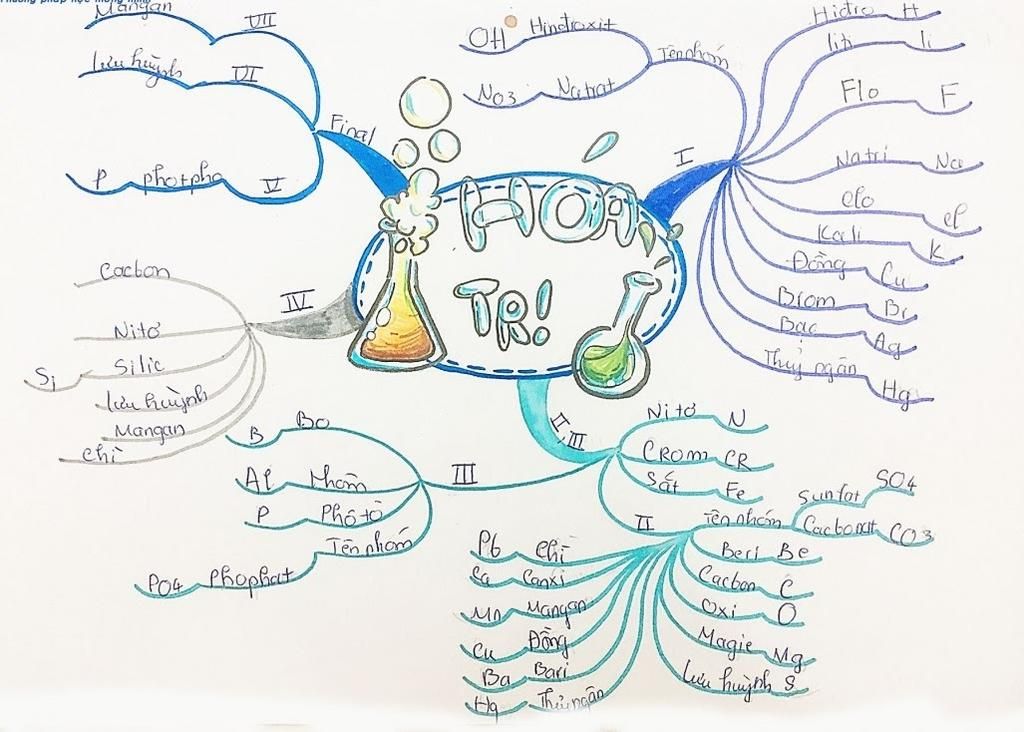 HÓA
TRỊ!
I
Hiđro H
liti li
Flo F
Natri Na
clo cl
Kali K
Đồng Cu
Brom Br
Bạc Ag
Thuỷ ngân Hg
Tên nhóm
OH Hiđroxit
NO3 Natrat
II, III
Nitơ N
CRom CR
Sắt Fe
II
Tên nhóm
Sunfat SO4
Cacbonat CO3
Beri Be
Cacbon C
Oxi O
Magie Mg
lưu huỳnh S
Pb chì
Ca Canxi
Mn Mangan
Cu Đồng
Ba Bari
Hg Thủy ngân
III
B Bo
Al Nhôm
P Phôtô
Tên nhóm
PO4 Phophat
IV
Cacbon
Nitơ
Si Silic
lưu huỳnh
Mangan
chì
Final
VII
Mangan
VI
lưu huỳnh
V
P photpho